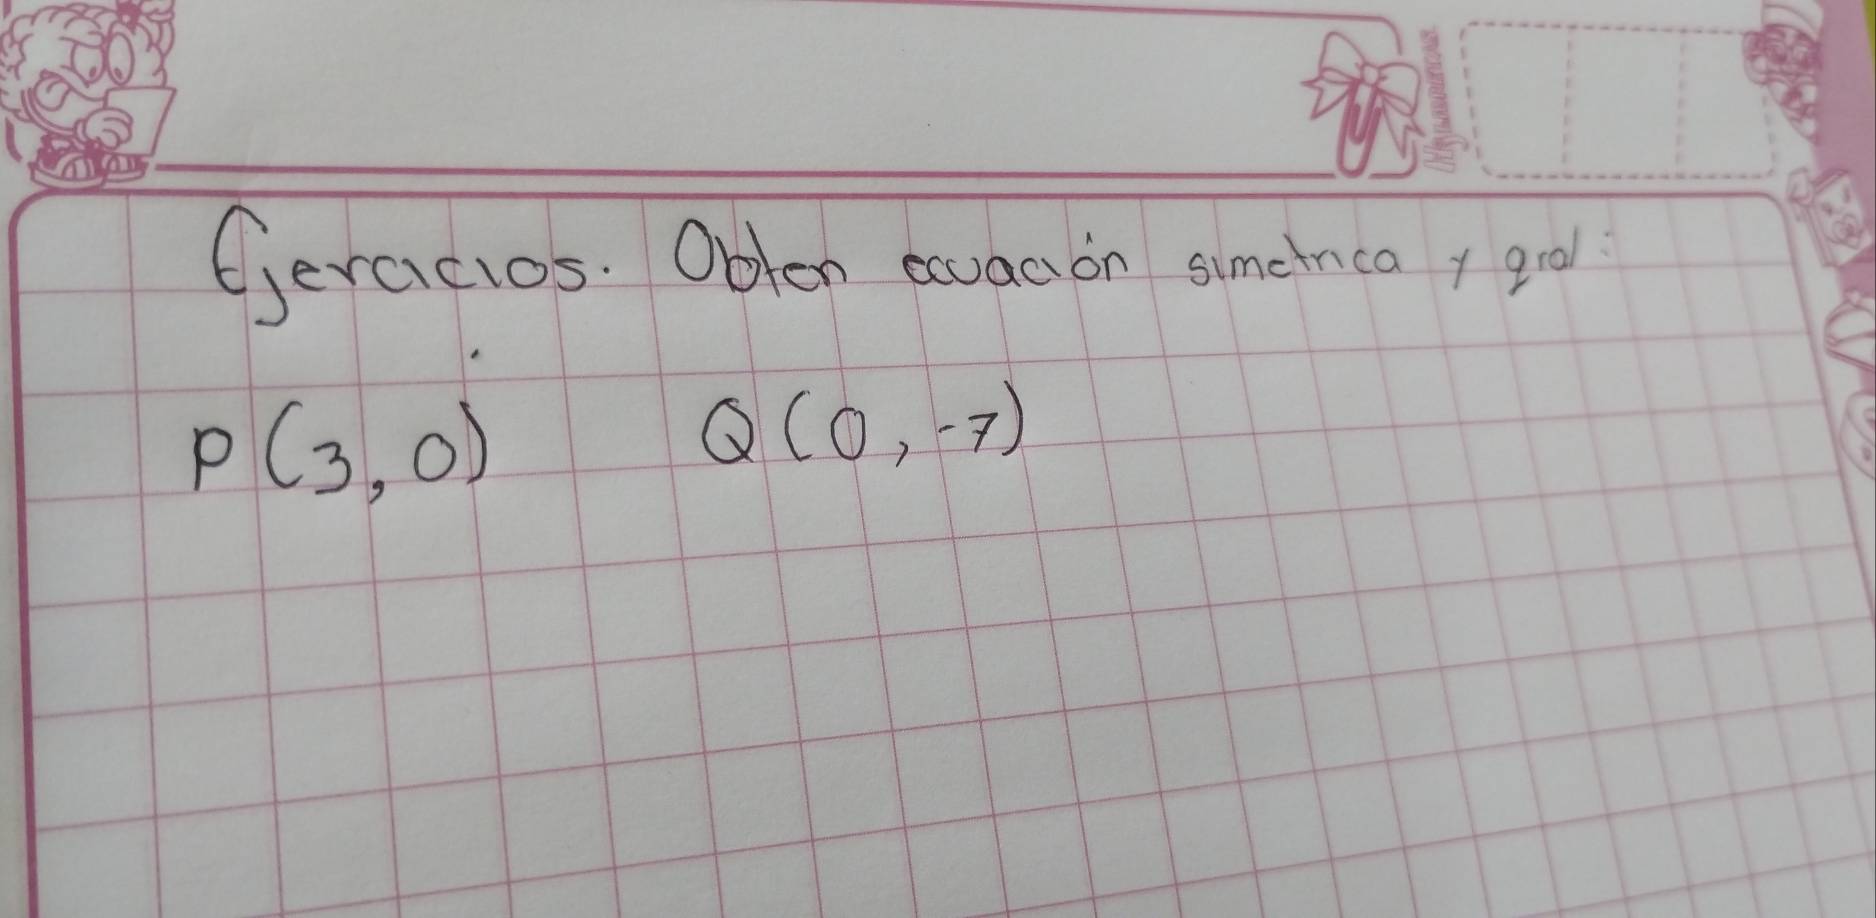 Ejercicios. Obten ecuación simetrica y gral:
P(3,0) Q(0,-7)